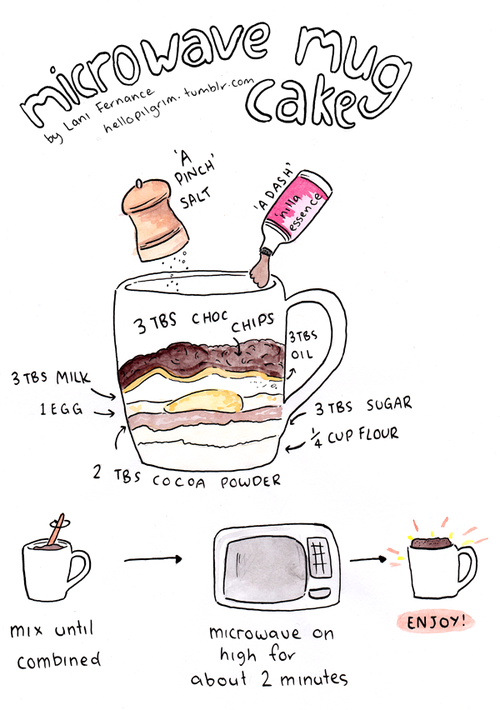 microwave mug
cake
by Lani Fernance
hellopilgrim.tumblr.com
'A
PINCH'
SALT
'A DASH'
'nilla
essence
3 TBS CHOC CHIPS
3TBS
OIL
3 TBS MILK
1 EGG
3 TBS SUGAR
1/4 CUP FLOUR
2 TBS COCOA POWDER
mix until
combined
microwave on
high for
about 2 minutes
ENJOY!